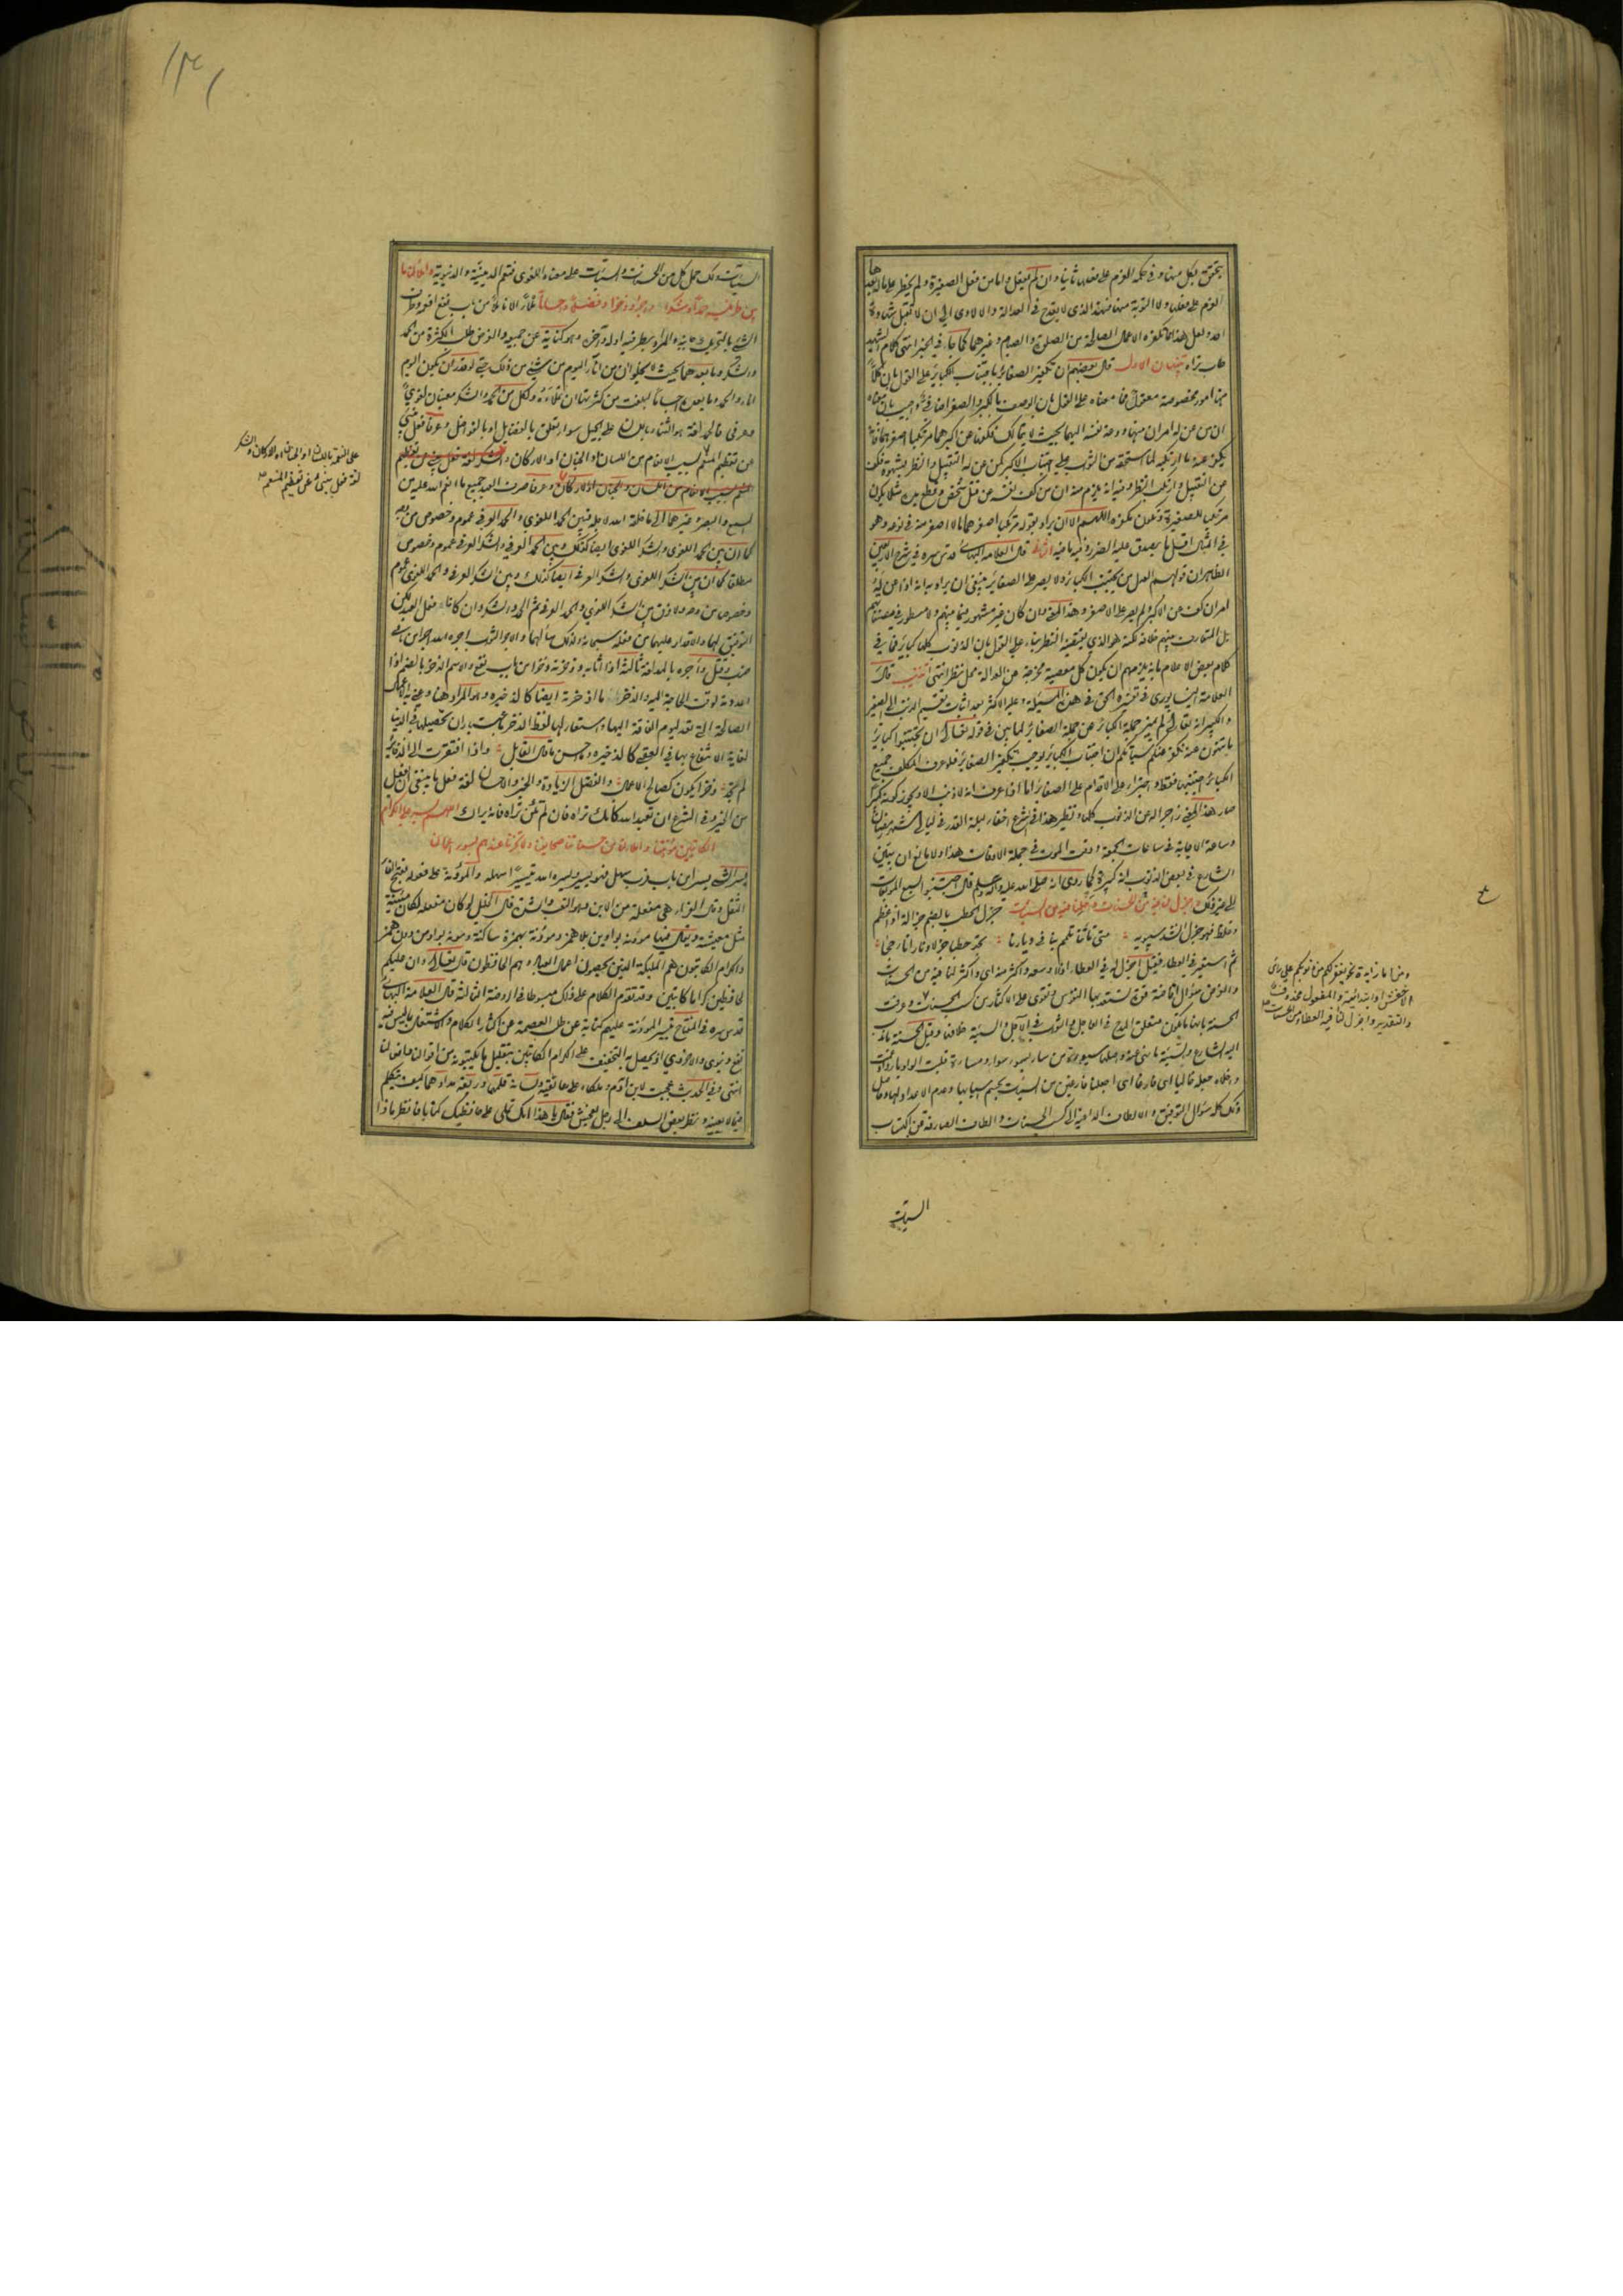 يتحقق بكل منهما وفي حكمه العزم على فعلها ثانيا وان لم يفعل واما من فعل الصغيرة ولم يخطر على باله بعدها
العزم على فعلها ولا التوبة منها فهذا الذي لا يقدح في العدالة والا لادى الى ان لا تقبل شهادة
احد ولعل هذا مما تكفره الاعمال الصالحة من الصلوة والصيام وغيرهما كما جاء في الخبر انتهى كلام الشهيد
طاب ثراه تنبيهان الاول قال بعضهم ان تكفير الصغائر باجتناب الكبائر على القول بان كلا
من امور مخصوصة معقول فما معناه على القول بان الوصف بالكبر والصغر اضافي واجيب بان معناه
ان من عن له امران منهما ودعته نفسه اليهما بحيث لا يتمالك فكفها عن اكبرهما مرتكبا اصغرهما فانه
يكفر عنه ما ارتكبه لما استحقه من الثواب على اجتناب الاكبر كمن عن له التقبيل والنظر بشهوة فكف
عن التقبيل وارتكب النظر وفيه انه يلزم منه ان من كف نفسه عن قتل شخص وقطع يده مثلا يكون
مرتكبا للصغيرة وتكون مكفرة اللهم الا ان يراد بقوله مرتكبا اصغرهما ما لا اصغر منه في نوعه وهو
في المثال اقل ما يصدق عليه الضرر وفيه ما فيه الثاني قال العلامة البهائي قدس سره في شرح الاربعين
الظاهر ان قولهم العدل من يجتنب الكبائر ولا يصر على الصغائر ينبغي ان يراد به انه اذا عن له
امران كف عن الاكبر ولم يصر على الاصغر وهذا المعنى وان كان غير مشهور فيما بينهم ولا مسطور في مصنفاتهم
بل المتعارف بينهم خلافه لكنه هو الذي يقتضيه النظر بناء على القول بان الذنوب كلها كبائر فما يرى في
كلام بعض الاعلام بانه يلزمهم ان يكون كل معصية مخرجة عن العدالة محل نظر انتهى تذنيب قال
العلامة النيسابوري في تفسيره الحق في هذه المسئلة وعليه الاكثر بعد اثبات تقسيم الذنب الى الصغير
والكبير انه تعالى لم يميز جملة الكبائر عن جملة الصغائر لما بين في قوله تعالى ان تجتنبوا كبائر
ما تنهون عنه نكفر عنكم سيئاتكم ان اجتناب الكبائر يوجب تكفير الصغائر فلو عرف المكلف جميع
الكبائر اجتنبها فقط واجتراء على الاقدام على الصغائر اما اذا عرف انه لا ذنب الا ويجوز كونه كبيرا
صار هذا المعنى زاجرا له من الذنوب كلها ونظير هذا في الشرع اخفاء ليلة القدر في ليالي شهر رمضان
وساعة الاجابة في ساعات الجمعة ووقت الموت في جملة الاوقات هذا ولا مانع ان يبين
الشارع في بعض الذنوب انه كبيرة كما روي انه صلى الله عليه واله وسلم قال اجتنبوا السبع الموبقات
الى غير ذلك واجزل لنا فيه من الحسنات واخلنا فيه من السيئات جزل الحطب بالضم جزالة اذا عظم
وغلظ فهو جزل انشد سيبويه متى تأتنا تلمم بنا في ديارنا تجد حطبا جزلا ونارا تأججا
ثم استعير في العطاء فقيل اجزل له في العطاء اذا اوسعه واكثر منه اي واكثر لنا فيه من الحسنات
والغرض سؤال افاضة قوة تستعد بها النفوس وتقوى على الاكثار من كسب الحسنات وعرفت
الحسنة بانها ما يكون متعلق المدح في العاجل والثواب في الآجل والسيئة خلافها وقيل الحسنة ما ندب
اليه الشارع والسيئة ما نهى عنه واصلها سيوئة من ساء يسوء سوءا ومساءة قلبت الواو ياء وادغمت
واخلاه جعله خاليا اي فارغا اي اجعلنا فارغين من السيئات بحسم اسبابها وعدم الاعداد لها وحاصل
ذلك كله سؤال التوفيق والالطاف الداعية الى كسب الحسنات والطاف الصارفة عن اكتساب
السيئات
ومن اما زائدة نحو يغفر لكم من ذنوبكم على رأي
الاخفش او ابتدائية والمفعول محذوف
والتقدير واجزل لنا فيه العطاء من الحسنات
السيئات ولك حمل كل من الحسنات والسيئات على معناه اللغوي فتعم الدينية والدنيوية واملأ لنا ما
بين طرفيه حمدا وشكرا واجرا وذخرا وفضلا واحسانا ملأ الاناء ملأ من باب نفع افعمه وطرف
الشيء بالتحريك جانبه والمراد بطرفيه اوله وآخره وهو كناية عن جميعه والغرض طلب الكثرة من الحمد
والشكر وما بعدهما بحيث لا يخلو ان من آناء اليوم من شيء من ذلك حتى لو قدر ان يكون اليوم
اناء والحمد وما بعده اجساما لبلغت من كثرتها ان تملأه ولكل من الحمد والشكر معنيان لغوي
وعرفي فالحمد لغة هو الثناء باللسان على الجميل سواء تعلق بالفضايل او بالفواضل وعرفا فعل ينبئ
عن تعظيم المنعم بسبب الانعام من اللسان او الجنان او الاركان والشكر لغة فعل ينبئ عن تعظيم
المنعم بسبب الانعام من اللسان والجنان او الاركان وعرفا صرف العبد جميع ما انعم الله عليه من
السمع والبصر وغيرهما الى ما خلقه الله لاجله فبين الحمد اللغوي والحمد العرفي عموم وخصوص من وجه
كما ان بين الحمد اللغوي والشكر اللغوي ايضا كذلك وبين الحمد العرفي والشكر العرفي عموم وخصوص
مطلقا كما ان بين الشكر اللغوي والشكر العرفي ايضا كذلك وبين الشكر العرفي والحمد اللغوي عموم
وخصوص من وجه ولا فرق بين الشكر اللغوي والحمد العرفي ثم الحمد والشكر وان كانا من فعل العبد لكن
التوفيق لهما والاقدار عليهما من فعله سبحانه ولذلك سأله اياهما والاجر الثواب اجره الله اجرا من بابي
ضرب وقتل وآجره بالمد لغة ثالثة اذا اثابه وذخرته ذخرا من باب نفع والاسم الذخر بالضم اذا
اعددته لوقت الحاجة اليه والذخر ما اذخرته ايضا كالذخيره وهو المراد هنا وعنى به الاعمال
الصالحة التي تعد ليوم الفاقة اليها واستعار لها لفظ الذخر باعتبار ان تحصيلها في الدنيا
لغاية الانتفاع بها في العقبى كالذخيره واحسن ما قال القايل واذا افتقرت الى الذخاير
لم تجد ذخرا يكون كصالح الاعمال والفضل الزيادة والخير والاحسان لغة فعل ما ينبغي ان يفعل
من الخير وفي الشرع ان تعبد الله كانك تراه فان لم تكن تراه فانه يراك اللهم يسر على الكرام
الكاتبين مؤنتنا واملأ لنا من حسناتنا صحايفنا ولا تخزنا عندهم بسوء اعمالنا
يسر الشيء يسرا من باب قرب سهل فهو يسير ويسره الله تيسيرا سهله والمؤنة على فعولة بفتح الفاء
الثقل وقال الفراء هي مفعلة من الاين وهو التعب والشدة قال الخليل لو كان مفعلة لكان مئينة
مثل معيشة ويقال فيها موونة بواوين بلا همز ومؤنة بهمزة ساكنة ومونة بواو من دون همز
والكرام الكاتبون هم الملئكة الذين يحصون اعمال العباد وهم الحافظون قال تعالى وان عليكم
لحافظين كراما كاتبين وقد تقدم الكلام على ذلك مبسوطا في الروضة الثالثة قال العلامة البهائي
قدس سره في المفتاح تيسير المؤنة عليهم كناية عن طلب العصمة عن اكثار الكلام والاشتغال بما ليس فيه
نفع دنيوي ولا اخروي اذ يحصل به التخفيف على الكرام الكاتبين بتقليل ما يكتبونه من اقوالنا وافعالنا
انتهى وفي الحديث عجبت لابن آدم وملكاه على عاتقيه ولسانه قلمهما وريقه مدادهما كيف يتكلم
فيما لا يعنيه ونظر بعض السلف الى رجل يفحش فقال يا هذا انك تملي على حافظيك كتابا فانظر ماذا
على النعمة باللسان او الجنان او الاركان والشكر
لغة فعل ينبئ عن تعظيم المنعم صح